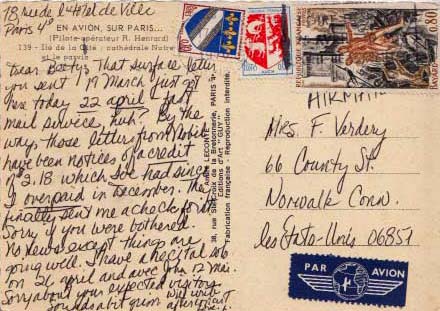 18, rue de l'Hôtel de Ville
Paris 4e
EN AVION, SUR PARIS...
(Pilote-opérateur R. Henrard)
139 - Ile de la Cité : cathédrale Notre
et le parvis
Dear Bootys, That surface letter
you sent 19 March just got
here today 22 april - fast
mail service, huh? By the
way, those letters from
have been notices of a credit
of 2.18 which I've had since
I overpaid in December. The
finally sent me a check for it.
Sorry if you were bothered.
No news except things are
going well. I have a recital
on 26 april and avec John 12 mai.
Sorry about your expected visitors
Sounds a bit grim
ANDRÉ LECONTE
38, rue Ste-Croix de la Bretonnerie, PARIS
Editions d'Art "GUY"
Fabrication française - Reproduction interdite.
AUCH
0,80
AIRMAIL
Mrs. F. Verdery
66 County St.
Norwalk Conn.
les États-Unis 06851
PAR AVION